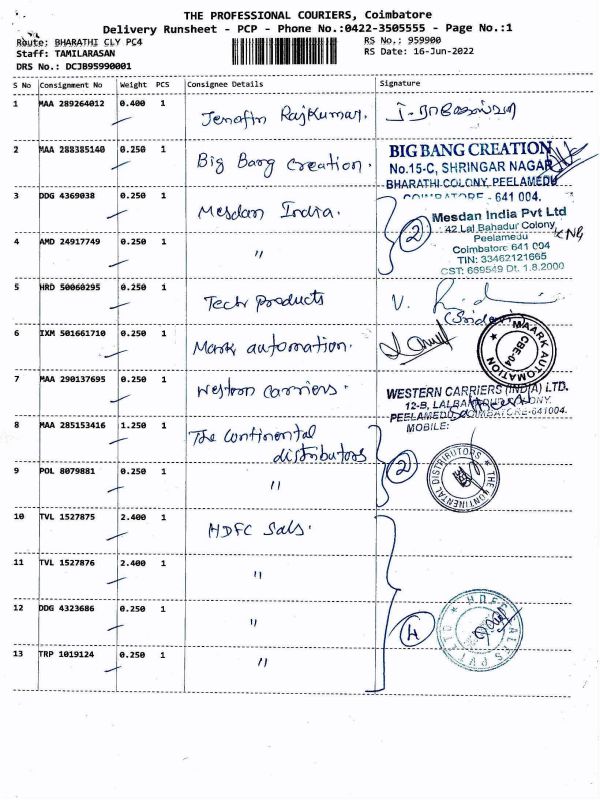 THE PROFESSIONAL COURIERS, Coimbatore
Delivery Runsheet - PCP - Phone No.:0422-3505555 - Page No.:1
Route: BHARATHI CLY PC4
RS No.: 959900
Staff: TAMILARASAN
RS Date: 16-Jun-2022
DRS No.: DCJB95990001
S No Consignment No Weight PCS Consignee Details Signature
1 MAA 289264012 0.400 1 Jenafin RajKumar.
2 MAA 288385140 0.250 1 Big Bang Creation.
BIG BANG CREATION
No.15-C, SHRINGAR NAGAR
BHARATHI COLONY, PEELAMEDU
COIMBATORE - 641 004.
3 DDG 4369038 0.250 1 Mesdan India.
Mesdan India Pvt Ltd
42,Lal Bahadur Colony,
Peelamedu
Coimbatore 641 004
TIN: 33462121665
CST: 669549 Dt. 1.8.2000
2
4 AMD 24917749 0.250 1 "
5 HRD 50060295 0.250 1 Tech products
6 IXM 501661710 0.250 1 Mark automation.
MAARK AUTOMATION
CBE-04
7 MAA 290137695 0.250 1 Western carriers.
WESTERN CARRIERS (INDIA) LTD.
12-B, LALBAHADUR COLONY,
PEELAMEDU COIMBATORE-641004.
MOBILE:
8 MAA 285153416 1.250 1 The continental
distributors
2
THE KONTINENTAL DISTRIBUTORS
9 POL 8079881 0.250 1 "
10 TVL 1527875 2.400 1 HDFC Sals.
11 TVL 1527876 2.400 1 "
12 DDG 4323686 0.250 1 "
4
13 TRP 1019124 0.250 1 "